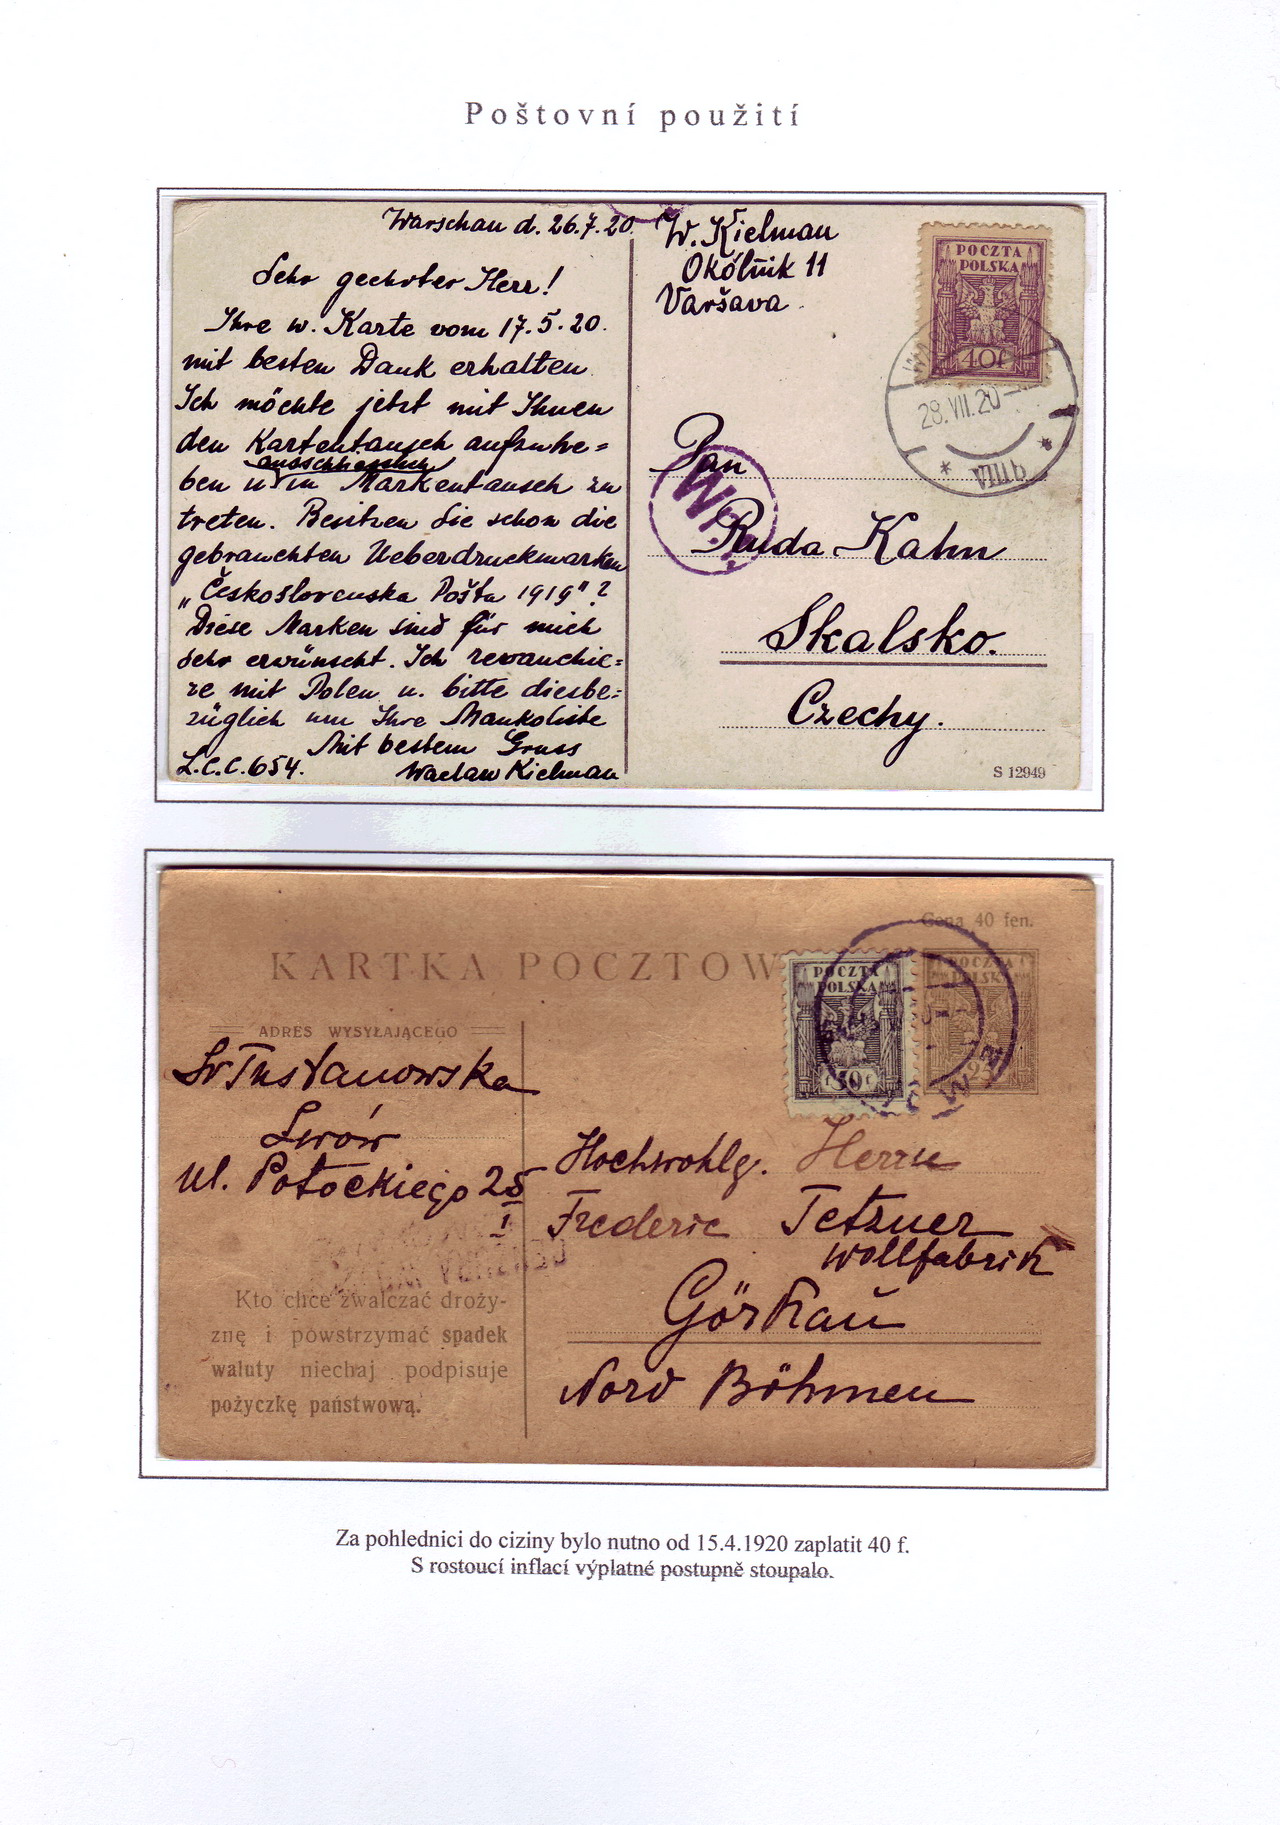 Poštovní použití
Warschau d. 26.7.20.
Sehr geehrter Herr!
Ihre w. Karte vom 17.5.20.
mit besten Dank erhalten
Ich möchte jetzt mit Ihnen
den Kartentausch aufzuhe=
ausschliesslich
ben u. in Markentausch zu
treten. Besitzen Sie schon die
gebrauchten Ueberdruckmarken
„Československa Pošta 1919"?
Diese Marken sind für mich
sehr erwünscht. Ich revanchie=
re mit Polen u. bitte diesbe=
züglich um Ihre Mankoliste
Mit bestem Gruss
L.C.C. 654. Waclaw Kielman
W. Kielman
Okólnik 11
Varšava
POCZTA
POLSKA
40f
28.VII.20
* VIII b *
Pan
Ruda Kahn
Skalsko.
Czechy.
S 12949
Cena 40 fen.
KARTKA POCZTOW
POCZTA
POLSKA
POCZTA
POLSKA
25
ADRES WYSYŁAJĄCEGO
Lwów
Ul. Potockiego 25
I
Hochwohlg. Herrn
Frederic Tetzner
Wollfabrik
Görkau
Nord Böhmen
Kto chce zwalczać droży-
znę i powstrzymać spadek
waluty niechaj podpisuje
pożyczkę państwową.
Za pohlednici do ciziny bylo nutno od 15.4.1920 zaplatit 40 f.
S rostoucí inflací výplatné postupně stoupalo.